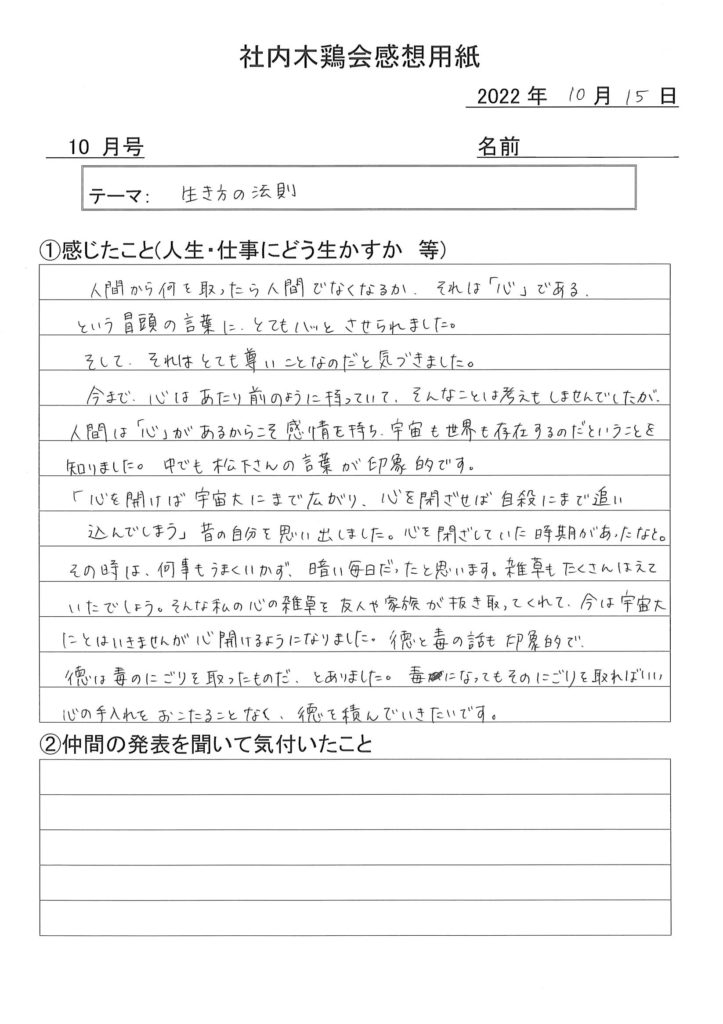 社内木鶏会感想用紙
2022 年 10 月 15 日
10 月号 名前
テーマ: 生き方の法則
①感じたこと(人生・仕事にどう生かすか 等)
人間から何を取ったら人間でなくなるか、それは「心」である、
という冒頭の言葉に、とてもハッとさせられました。
そして、それはとても尊いことなのだと気づきました。
今まで、心はあたり前のように持っていて、そんなことは考えもしませんでしたが、
人間は「心」があるからこそ感情を持ち、宇宙も世界も存在するのだということを
知りました。中でも松下さんの言葉が印象的です。
「心を開けば宇宙大にまで広がり、心を閉ざせば自殺にまで追い
込んでしまう」昔の自分を思い出しました。心を閉ざしていた時期があったなと。
その時は、何事もうまくいかず、暗い毎日だったと思います。雑草もたくさんはえて
いたでしょう。そんな私の心の雑草を友人や家族が抜き取ってくれて、今は宇宙大
にとはいきませんが心開けるようになりました。徳と毒の話も印象的で、
徳は毒のにごりを取ったものだ、とありました。毒になってもそのにごりを取ればいい
心の手入れをおこたることなく、徳を積んでいきたいです。
②仲間の発表を聞いて気付いたこと